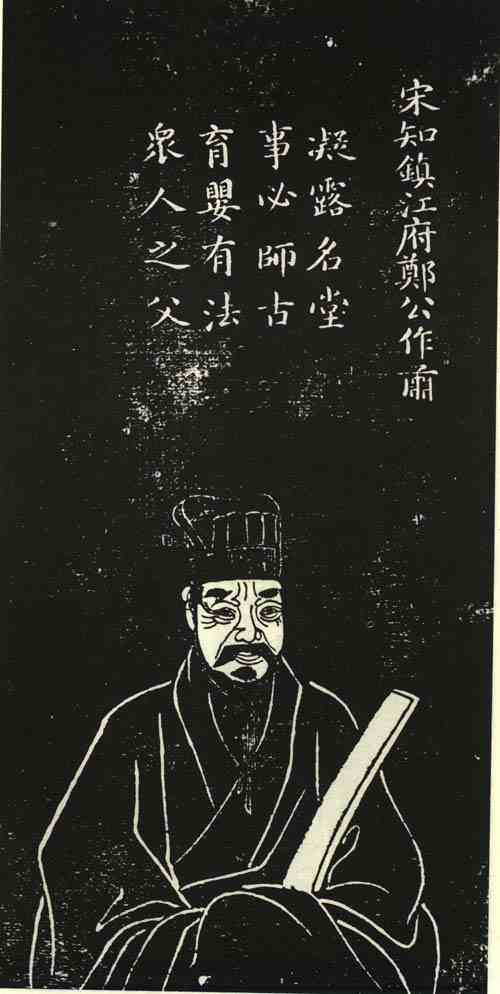 宋知鎮江府鄭公作肅
凝露名堂
事必師古
育嬰有法
衆人之父